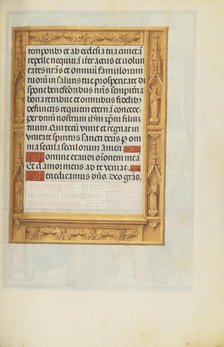 temporibus et ab ecclesia tua cunctā
repelle nequitiā: iter actus et volun
tates nr̄as et omniū famulorum
tuorum in salutis tue prosperitate di
spone benefactoribus nr̄is sempiterna
bona retribue et omnibus fidelib
defunctis requiem eternā concede
per dominum nostrum ihm̄ xp̄m filium
tuum Qui tecum vivit et regnat in
unitate spiritus sancti deus Per om
nia secula seculorum amen
Domine exaudi or̄onem mea
Et clamor meus ad te veniat.
Benedicamus dn̄o. Deo grās.